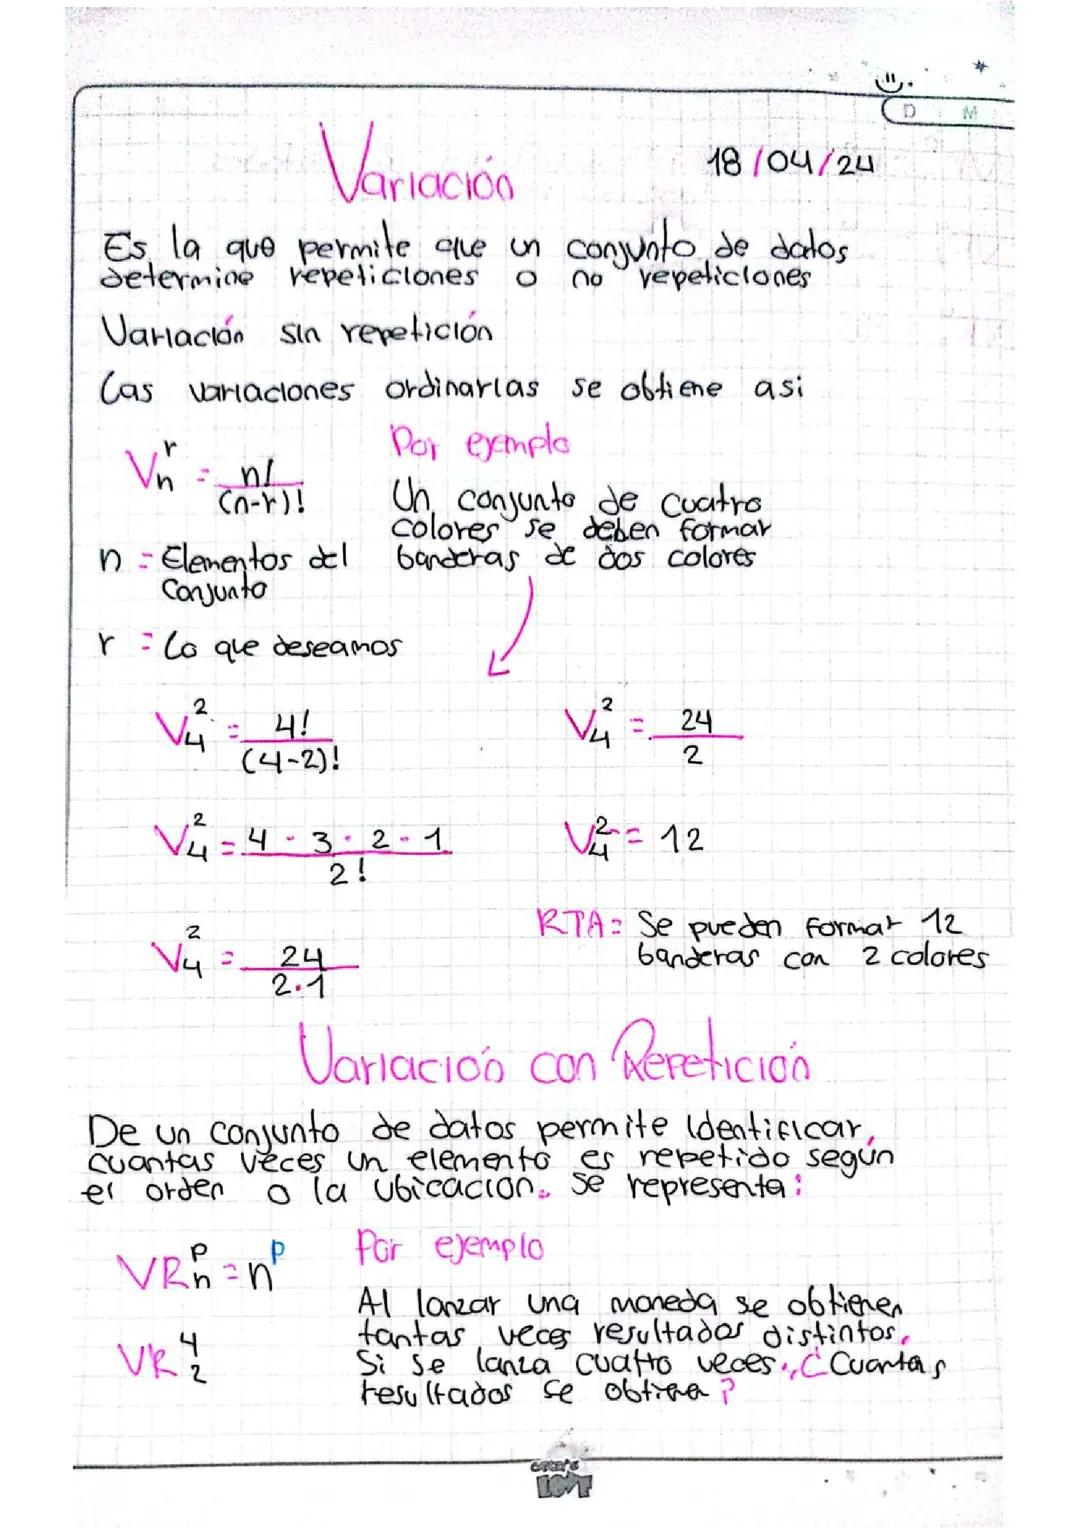 D M
Variación 18/04/24
Es la que permite que un conjunto de datos
determine repeticiones o no repeticiones
Variación sin repetición
Las variaciones ordinarias se obtiene asi
V_n^r = n!/(n-r)!
Por ejemplo
Un conjunto de cuatro
colores se deben formar
banderas de dos colores
n = Elementos del
Conjunto
r = Lo que deseamos
V_4^2 = 4!/(4-2)!
V_4^2 = 4·3·2·1/2!
V_4^2 = 24/2·1
V_4^2 = 24/2
V_4^2 = 12
RTA= Se pueden formar 12
banderas con 2 colores
Variación con Repetición
De un conjunto de datos permite Identificar,
cuantas veces un elemento es repetido según
el orden o la ubicación. Se representa:
VR_n^p = n^p
VR_2^4
Por ejemplo
Al lanzar una moneda se obtienen
tantas veces resultados distintos,
Si se lanza cuatro veces., ¿Cuantas
resultados se obtiene?
LOVE